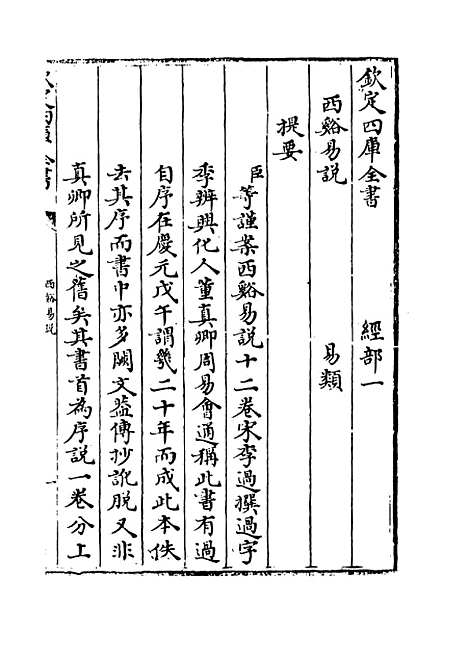 欽定四庫全書 經部一
西谿易說 易類
提要
臣等謹案西谿易說十二卷宋李過撰過字
季辨興化人董真卿周易會通稱此書有過
自序在慶元戊午謂幾二十年而成此本佚
去其序而書中亦多闕文葢傳抄訛脫又非
真卿所見之舊矣其書首為序說一卷分上
西谿易說 一